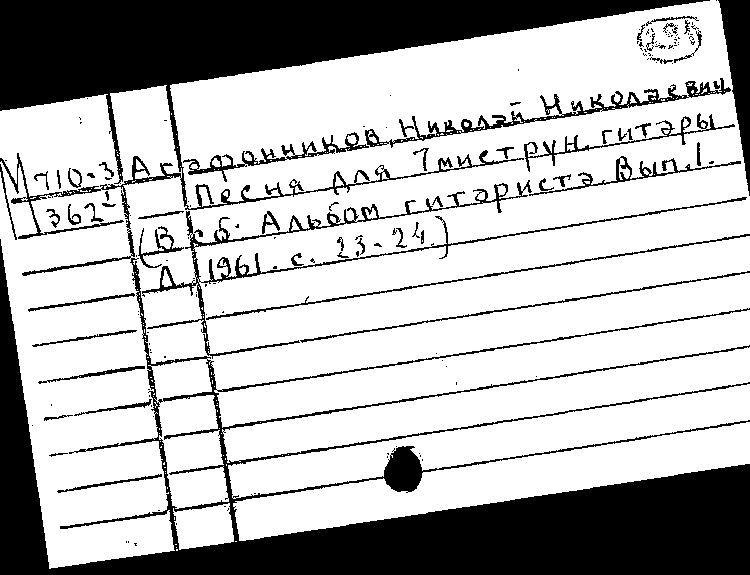 М 710-3
1 362¹
Агафонников, Николай Николаевич.
Песня для 7миструн. гитары
(В сб. Альбом гитариста. Вып. 1.
Л. 1961. с. 23-24)